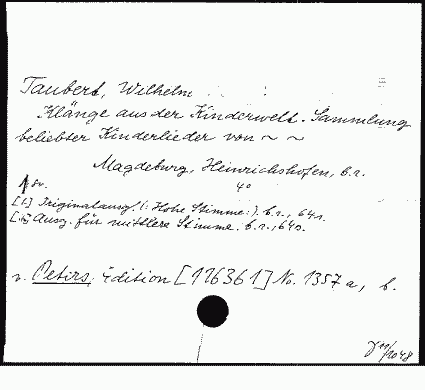 Taubert, Wilhelm
Klänge aus der Kinderwelt. Sammlung
beliebter Kinderlieder von ~ ~
Magdeburg, Heinrichshofen, b.r.
4°
[1.] Originalausg. (: Hohe Stimme :). b.r., 64 s.
Ausg. für mittlere Stimme. b.r., 64 s.
v. Peters, Edition [126361] No. 1357 a, b.